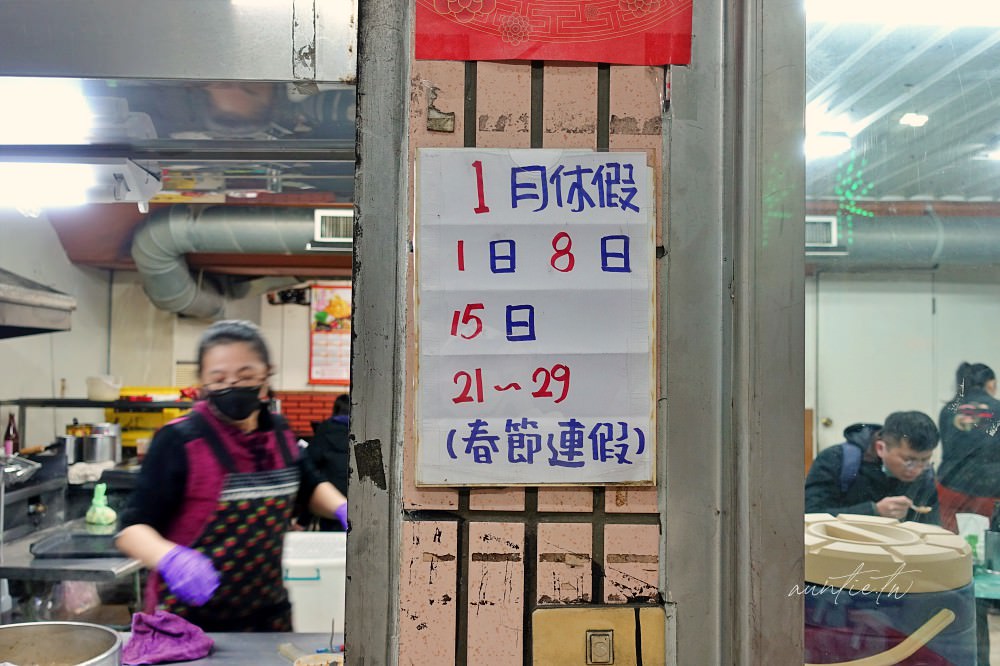 1月休假
1日 8日
15日
21～29
(春節連假)
auntie.tw